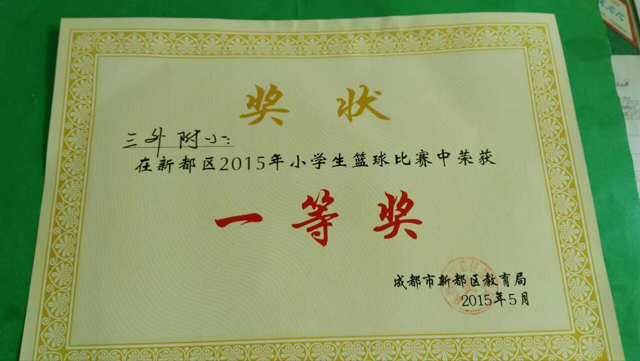 奖状
三外附小:
在新都区2015年小学生篮球比赛中荣获
一等奖
成都市新都区教育局
2015年5月